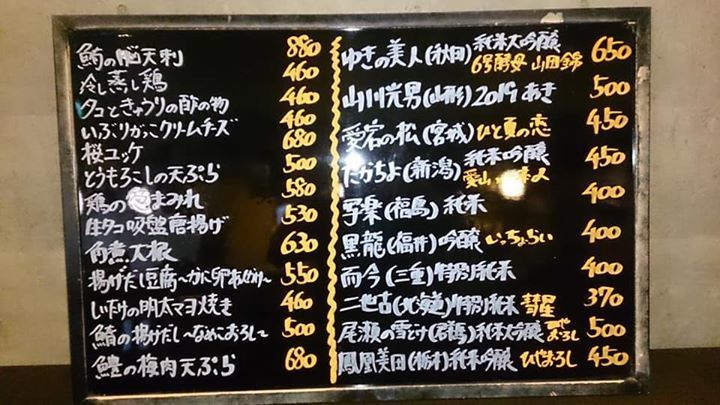 鮪の脳天刺 880
冷し蒸し鶏 460
タコときゅうりの酢の物 460
いぶりがっこクリームチーズ 460
桜ユッケ 680
とうもろこしの天ぷら 500
鶏の まみれ 580
生タコ吸盤唐揚げ 530
角煮大根 630
揚げだし豆腐〜かに卵あんかけ〜 550
しいたけの明太マヨ焼き 460
鯖の揚げだし〜なめこおろし〜 500
鱧の梅肉天ぷら 680
ゆきの美人(秋田)純米大吟醸 6号酵母 山田錦 650
山川光男(山形)2019あき 500
愛宕の松(宮城)ひと夏の恋 450
たかちよ(新潟)純米吟醸 愛山 450
写楽(福島)純米 400
黒龍(福井)吟醸 いっちょらい 400
而今(三重)特別純米 400
二世古(北海道)特別純米 彗星 370
尾瀬の雪どけ(群馬)純米大吟醸 ひやおろし 500
鳳凰美田(栃木)純米吟醸 ひやおろし 450